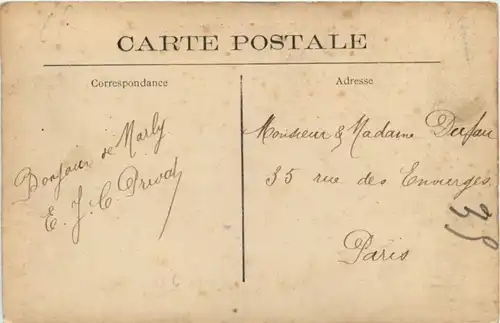 CARTE POSTALE
Correspondance
Bonjour de Marly
E. J. C Privat
Adresse
Monsieur & Madame Dufau
35 rue des Envierges
Paris
35